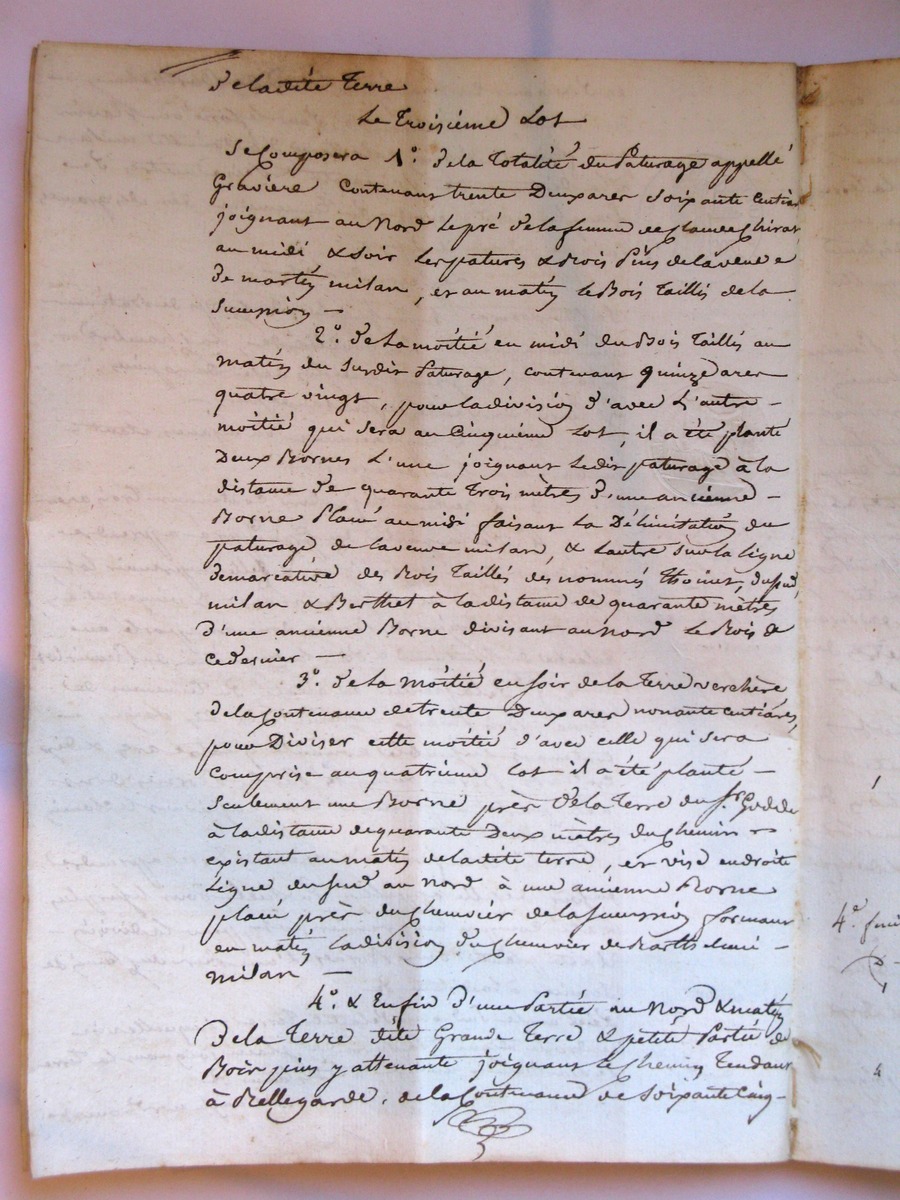 de ladite Terre
Le Troisiéme Lot
se Composera 1°. de la Totalité du Paturage appellé
Graviere Contenant trente Deux ares Soixante Centiar
joignant au Nord le pré de la femme de Claude
au midi & soir les patures & Bois Pins de la veuve
de martin milan, et au matin le Bois Taillis de la
Succession —
2°. de La moitié en midi du Bois Taillis au
matin du Surdit Paturage, contenant quinze ares
quatre vingt, pour la division d'avec L'autre —
moitié qui sera au Cinquiéme Lot, il a été planté
Deux Bornes L'une joignant Ledit paturage à la
distance de quarante Trois mètres d'une ancienne —
Borne Placée au midi faisant La Délimitation du
paturage de la veuve milan, & Lautre sur la Ligne
demarcative des Bois Taillis des nommés Thoinet,
milan & Berthet à la distance de quarante mètres
d'une ancienne Borne divisant au Nord Le Bois de
ce dernier —
3°. de La Moitié en soir de la Terre verchère
de la Contenance de trente Deux ares nonante centiares,
pour Diviser cette moitié d'avec celle qui sera
comprise au quatriéme Lot il a été planté —
seulement une Borne près de la Terre du Sr.
à la distance de quarante Deux mètres du Chemin
existant au matin de ladite terre, et vise en droite
Ligne du sud au Nord à une ancienne Borne
placée près du Chenevier de la Succession formant
en matin la division du Chenevier de Barthelemi —
milan —
4°. & Enfin d'une Partie au Nord & matin
De la Terre dite Grande Terre & petite Partie de
Bois pins y attenante joignant le Chemin Tendant
à Bellegarde, de la Contenance de Soixante Cinq —
4°.
4